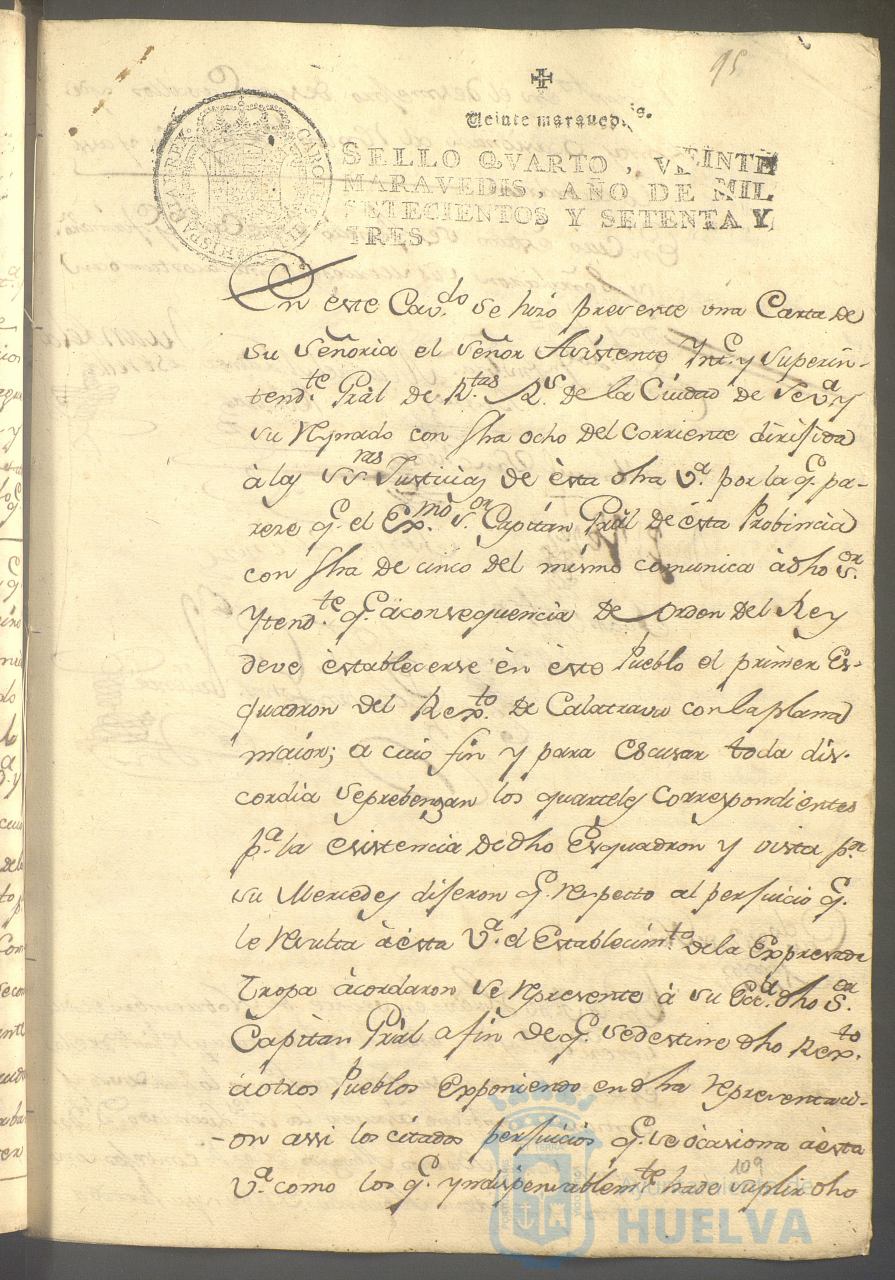 95
Veinte maraued.s
SELLO QVARTO, VEINTE
MARAVEDIS, AÑO DE MIL
SETECIENTOS Y SETENTA Y
TRES
HISPANIARUM REX
En este Cav.do se hizo presente una Carta de
su señoria el señor Asistente Ynt.e y superin-
tend.te Grâl de R.tas R.s de la Ciudad de Sev.a y
su Reynado con fha ocho del corriente dirijida
à las ss.ras Justicias de èsta dha V.a por la q.e pa-
reze q.e el Ex.mo S.or Capitàn Grâl de èsta Probincia
con fha de cinco del mismo comunica à dho S.or
Ytend.te q.e à consequencia de orden del Rey
deve èstablecerse èn èste Pueblo el primer Es-
quadron del Rex.to de Calatrava con la plana
maior; a cuio fin y para escusar toda dis-
cordia se prebengan los quarteles correspondientes
p.a la existencia de dho Esquadròn y vista p.r
su Mercedes dijeron q.e respecto al perjuicio q.e
le resulta à èsta V.a el Establecim.to de la Expresada
Tropa àcordaron se represente à su Exc.a dho S.or
Capitàn Grâl a fin de q.e se destine dho Rex.to
à otros Pueblos Exponiendo en dha representaci-
on assi los citados perjuicios q.e se òcasiona à èsta
V.a como los q.e yndispensablem.te ha de suplir dho
109
Ayuntamiento de
HUELVA